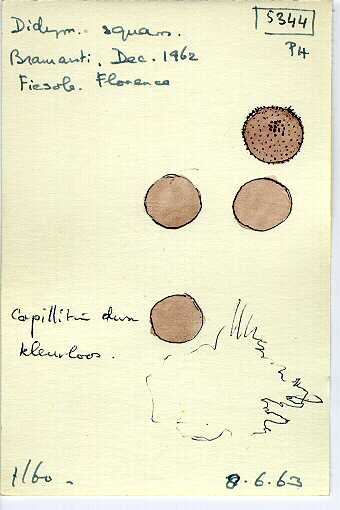 Didym. squam.
5344
PH
Bramanti. Dec. 1962
Fiesole. Florence
Capillitia dun
kleurloos.
1160.
8.6.63